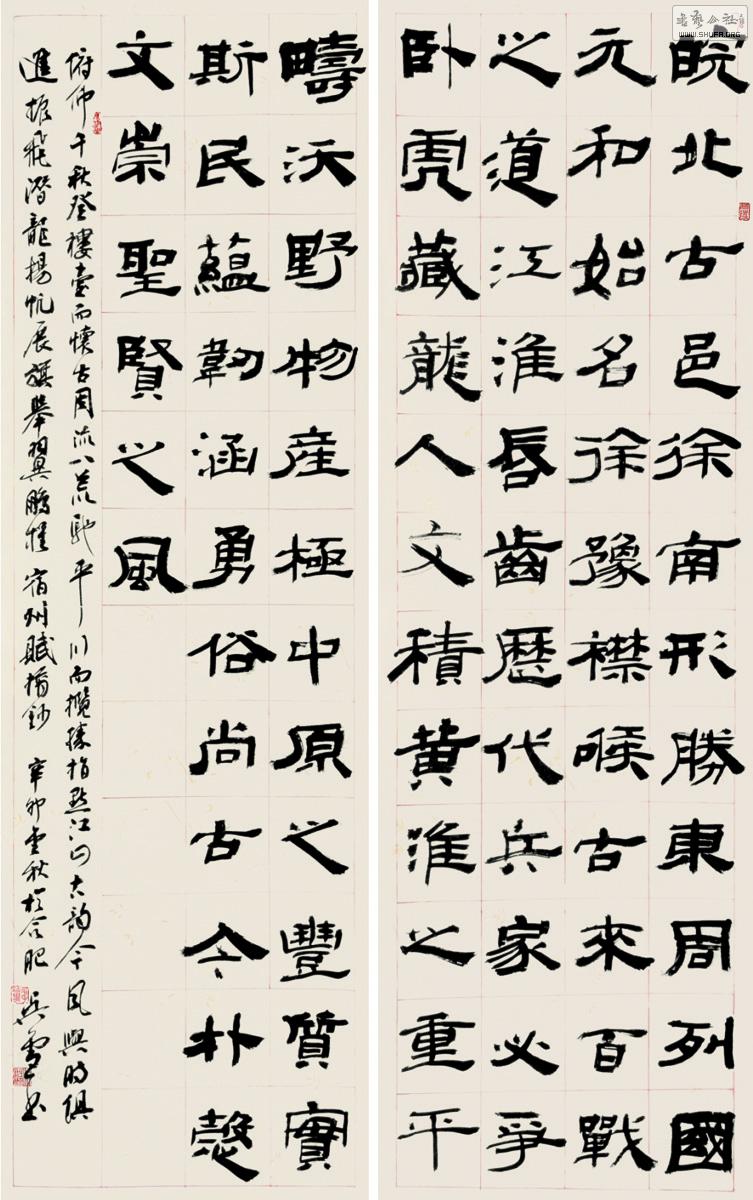 書藝公社
WWW.SHUFA.ORG
皖北古邑徐南形勝東周列國
元和始名徐豫襟喉古來百戰
之道江淮唇齒歷代兵家必爭
卧虎藏龍人文積黄淮之重平
疇沃野物産極中原之豐質實
斯民蘊韌涵勇俗尚古今朴慤
文崇聖賢之風
俯仰千秋登樓臺而懷古周流八荒馳平川而攬勝指點江山古韵今風與時俱
進振飛潛龍揚帆展旗舉翼鵬程 宿州賦摘鈔 辛卯金秋於合肥 吴雪書